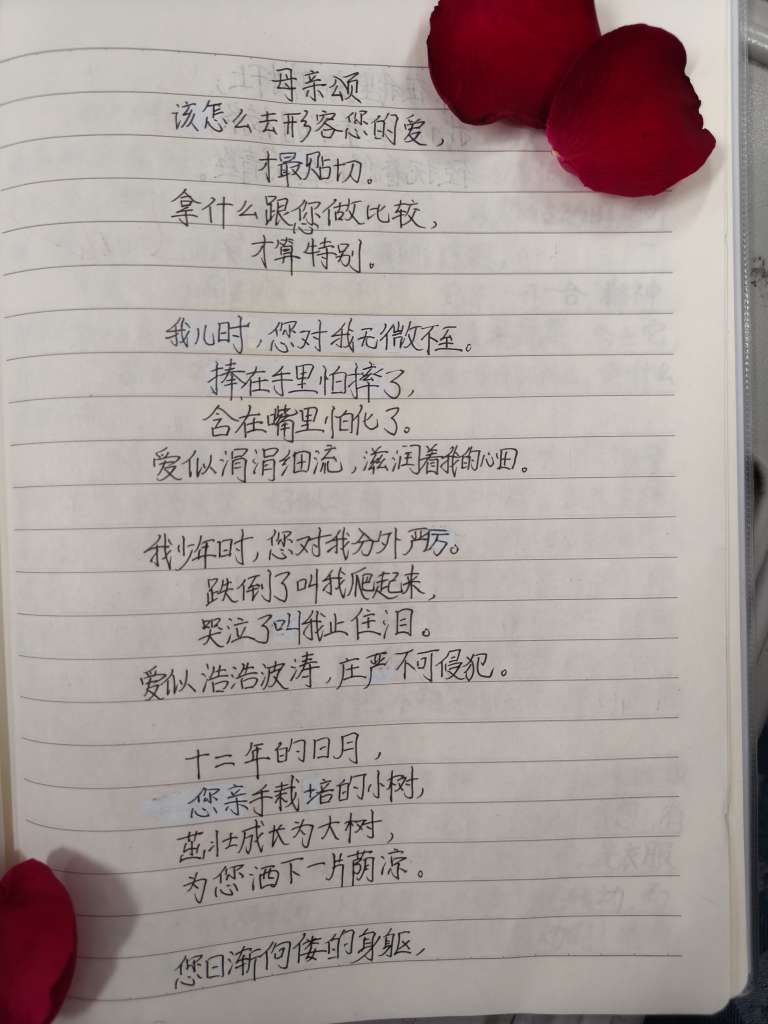 母亲颂
该怎么去形容您的爱，
才最贴切。
拿什么跟您做比较，
才算特别。
我儿时，您对我无微不至。
捧在手里怕摔了，
含在嘴里怕化了。
爱似涓涓细流，滋润着我的心田。
我少年时，您对我分外严厉。
跌倒了叫我爬起来，
哭泣了叫我止住泪。
爱似浩浩波涛，庄严不可侵犯。
十二年的日月，
您亲手栽培的小树，
茁壮成长为大树，
为您洒下一片荫凉。
您日渐佝偻的身躯，